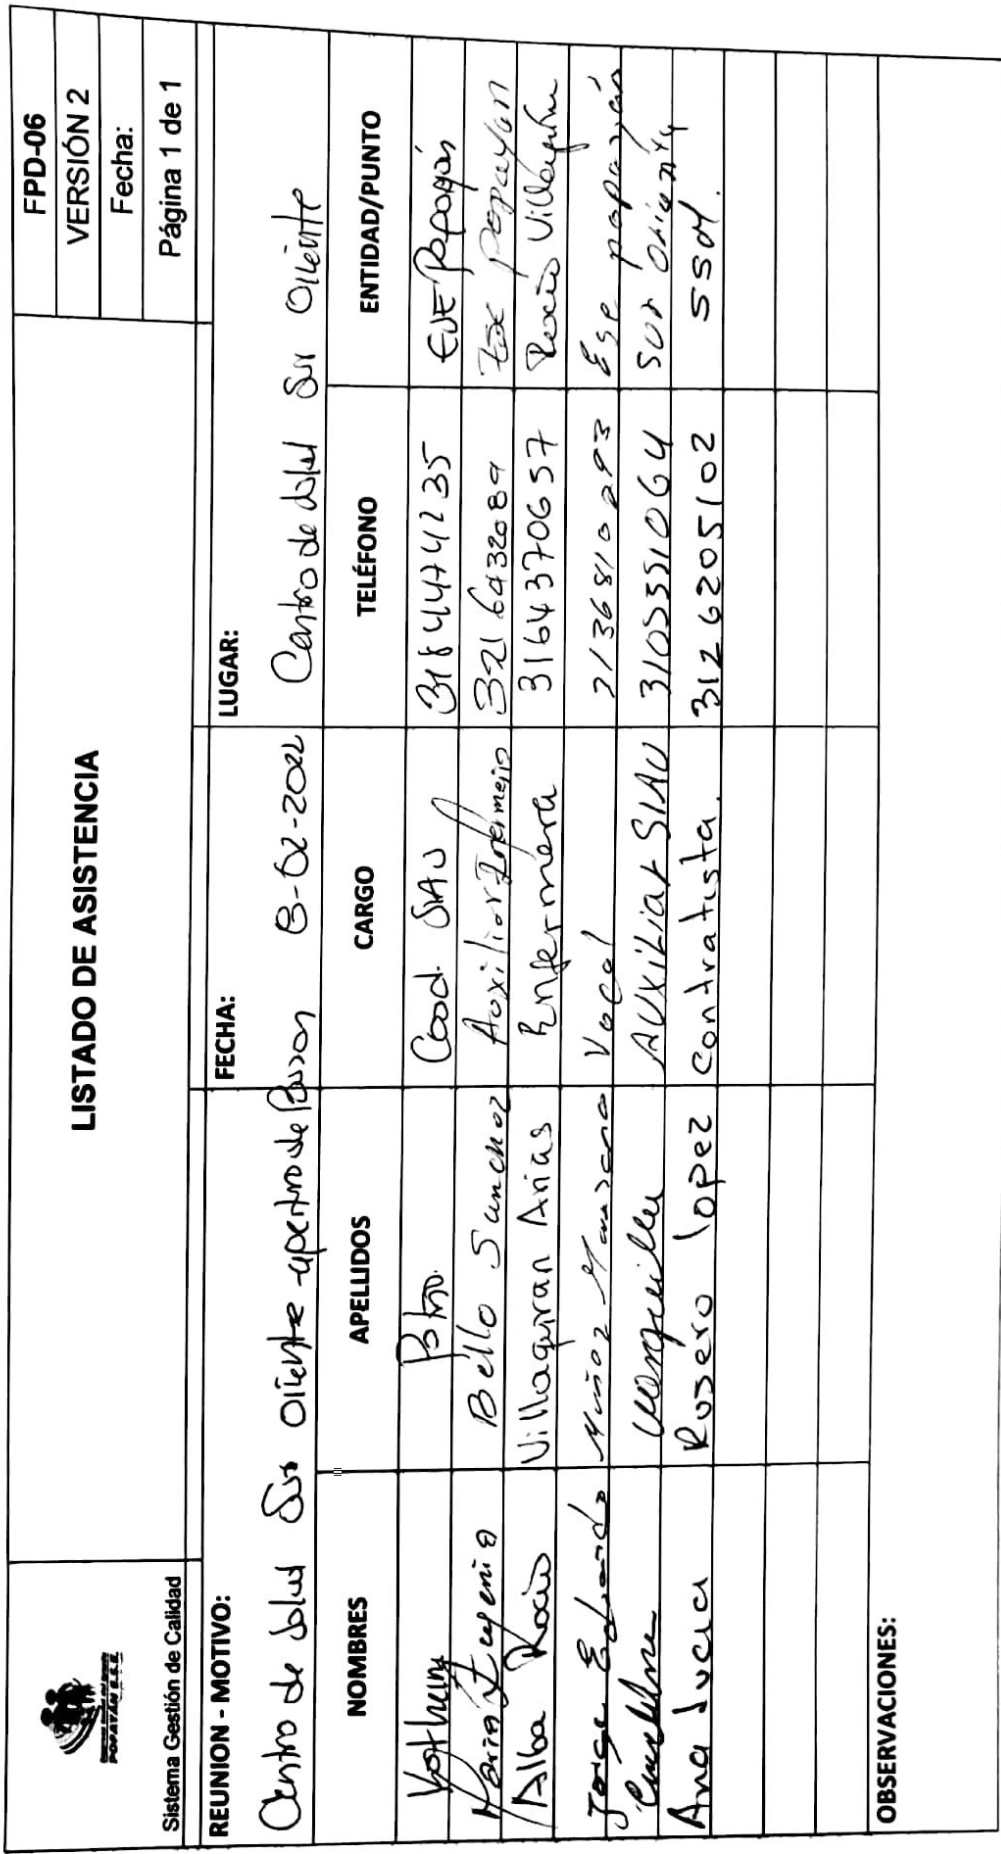 POPAYÁN E.S.E.
Sistema Gestión de Calidad
LISTADO DE ASISTENCIA
FPD-06
VERSIÓN 2
Fecha:
Página 1 de 1
REUNION - MOTIVO:
FECHA:
LUGAR:
Centro de Salud Sur Oriente - apertura de Buzon
8-02-2022
Centro de Salud Sur Oriente
NOMBRES APELLIDOS CARGO TELÉFONO ENTIDAD/PUNTO
Coord. SIAU 3184474235 ESE Popayán
Maria Eugenia Bello Sanchez Auxiliar Enfermeria 3216432089 Ese popayan
Alba Rocio Villaquiran Arias Enfermera 3164370657 Rocio Villaquiran
Jorge Eduardo Muñoz Manzano Vocal 3136810293 Ese popayán
AUXiliar SIAU 3105551064 SUR Oriente
Ana Lucia Rosero lopez Contratista. 3126205102 SSM.
OBSERVACIONES: